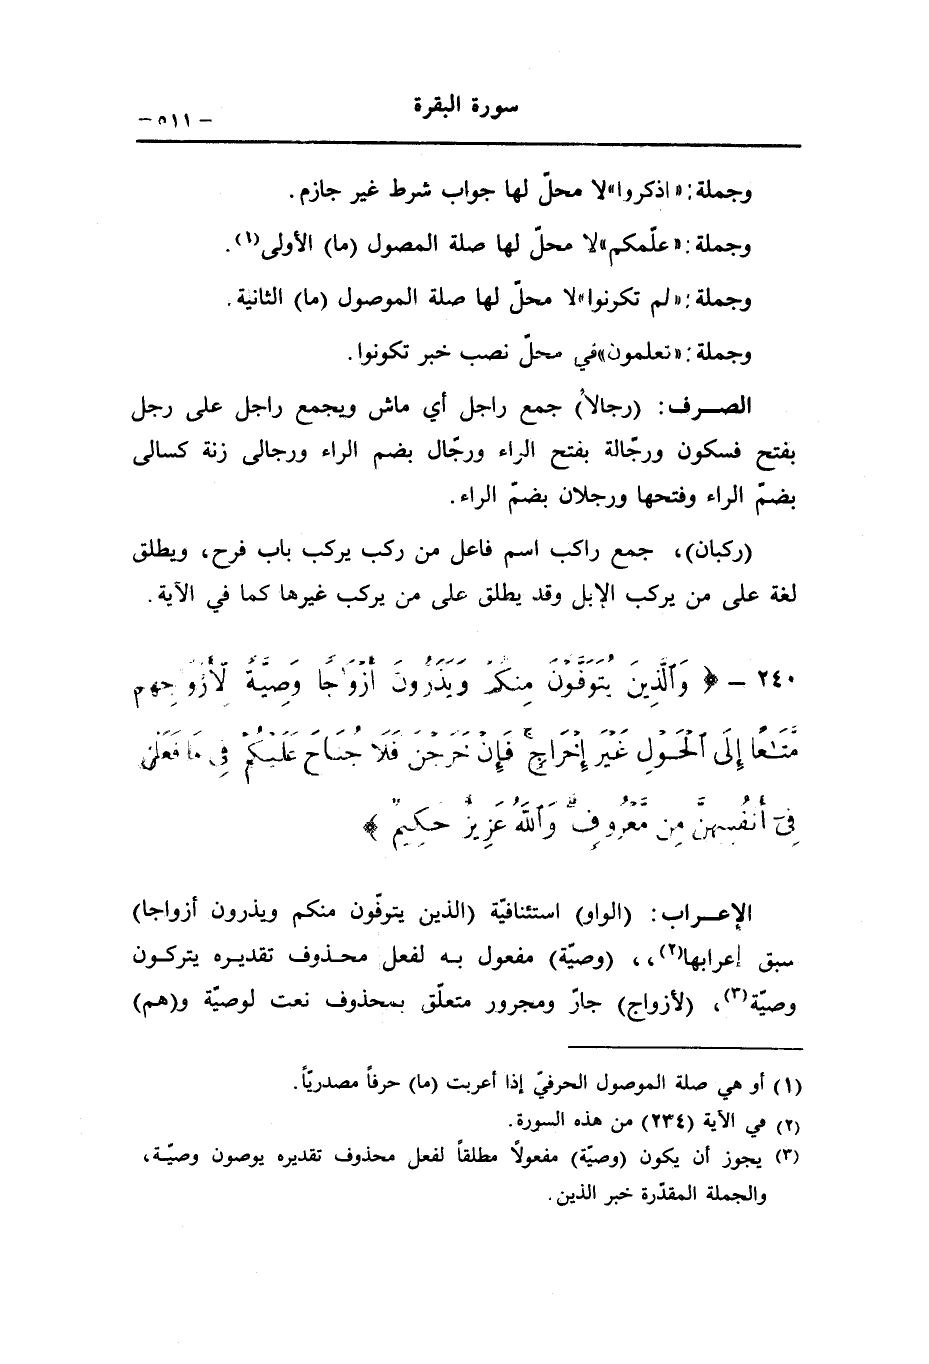 سورة البقرة
- ٥١١ -
وجملة: «اذكروا» لا محلّ لها جواب شرط غير جازم.
وجملة: «علّمكم» لا محلّ لها صلة المصول (ما) الأولى(١).
وجملة: «لم تكونوا» لا محلّ لها صلة الموصول (ما) الثانية.
وجملة: «تعلمون» في محلّ نصب خبر تكونوا.
الصرف: (رجالاً) جمع راجل أي ماش ويجمع راجل على رجل
بفتح فسكون ورجّالة بفتح الراء ورجّال بضم الراء ورجالى زنة كسالى
بضمّ الراء وفتحها ورجلان بضمّ الراء.
(ركبان)، جمع راكب اسم فاعل من ركب يركب باب فرح، ويطلق
لغة على من يركب الإبل وقد يطلق على من يركب غيرها كما في الآية.
٢٤٠ - ﴿ وَٱلَّذِينَ يُتَوَفَّوْنَ مِنكُمْ وَيَذَرُونَ أَزْوَٰجًا وَصِيَّةً لِّأَزْوَٰجِهِم
مَّتَـٰعًا إِلَى ٱلْحَوْلِ غَيْرَ إِخْرَاجٍ ۚ فَإِنْ خَرَجْنَ فَلَا جُنَاحَ عَلَيْكُمْ فِى مَا فَعَلْنَ
فِىٓ أَنفُسِهِنَّ مِن مَّعْرُوفٍ ۗ وَٱللَّهُ عَزِيزٌ حَكِيمٌ ﴾
الإعراب: (الواو) استئنافيّة (الذين يتوفّون منكم ويذرون أزواجا)
سبق إعرابها(٢)،، (وصيّة) مفعول به لفعل محذوف تقديره يتركون
وصيّة(٣)، (لأزواج) جارّ ومجرور متعلّق بمحذوف نعت لوصيّة و(هم)
(١) أو هي صلة الموصول الحرفيّ إذا أعربت (ما) حرفاً مصدريّاً.
(٢) في الآية (٢٣٤) من هذه السورة.
(٣) يجوز أن يكون (وصيّة) مفعولاً مطلقاً لفعل محذوف تقديره يوصون وصيّة،
والجملة المقدّرة خبر الذين.